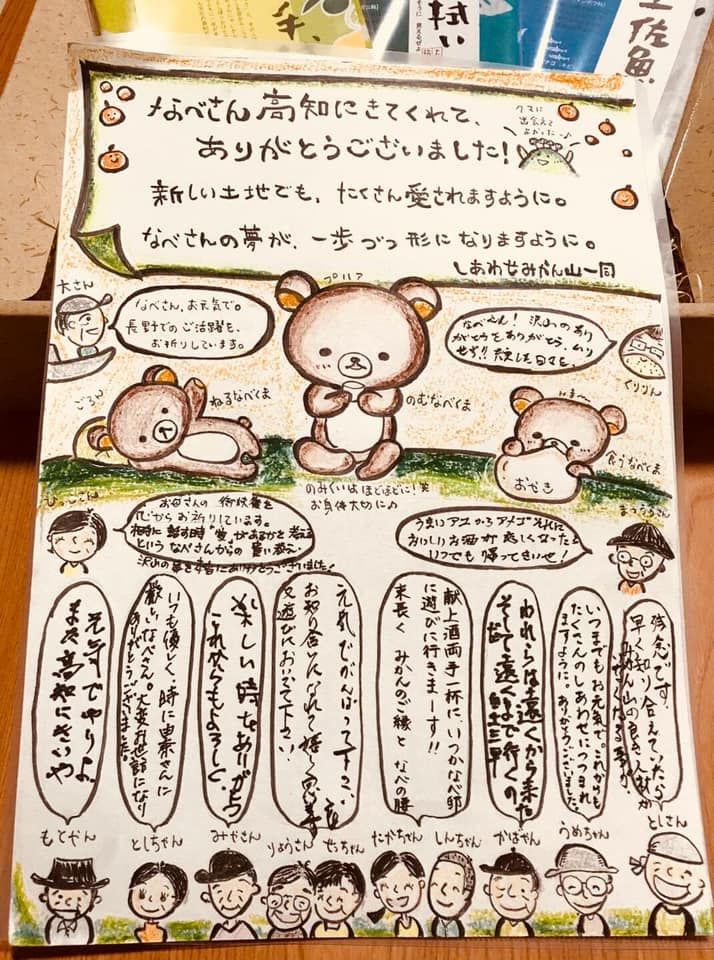 手、
拭い
土佐魚
なべさん高知にきてくれて、
ありがとうございました!
クマに
出会えて
よかったー♪
新しい土地でも、たくさん愛されますように。
なべさんの夢が、一歩づつ形になりますように。
しあわせみかん山一同
大さん
なべさん、お元気で。
長野でのご活躍を、
お祈りしています。
プハア
なべさん!沢山のあり
がとうをありがとう、ムリ
せず!!
日々を。
くりりん
ごろん
ねるなべくま
のむなべくま
食うなべくま
おやき
のみくいはほどほどに!笑
お身体大切に♪
お母さんの
心からお祈りしています。
相手に話す時"愛"があるかを考える
という なべさんからの 教え、
沢山の愛を本当にありがとうございました!
うまいアユから アメゴ それに
おいしいお酒が 恋しくなったら
いつでも帰ってきいせ!
まつうらさん
元気でやりよ。
また高知にきいや
もてやん
いつも優しく、時に
厳しいなべさん。大変お世話になり
ありがとうございました。
としちゃん
楽しい時をありがとう
これからもよろしく。
みやさん
元気でがんばって下さい。
お知り合いになれて嬉しく思います
又遊びにおいで下さい。
りょうさん
せっちゃん
献上酒両手一杯に、いつかなべ邸
に遊びに行きまーす!!
末長く みかんのご縁と なべの腰
たかちゃん
しんちゃん
われらは遠くから来た
そして遠くまで行くのだ
がばやん
いつまでもお元気で。これからも
たくさんのしあわせにつつまれ
ますように。ありがとうございました。
うめちゃん
残念です。
早く知り合えていたら
みかん山の良き人材が
としさん